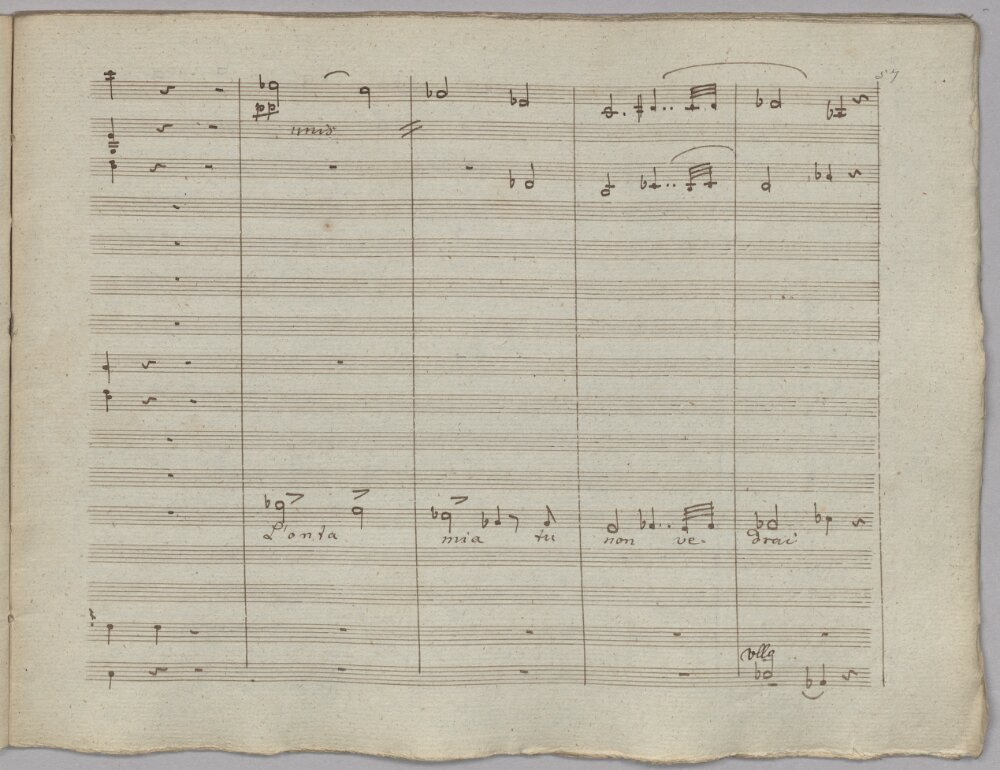 57
unis
L'onta mia tu non ve- drai
vllo